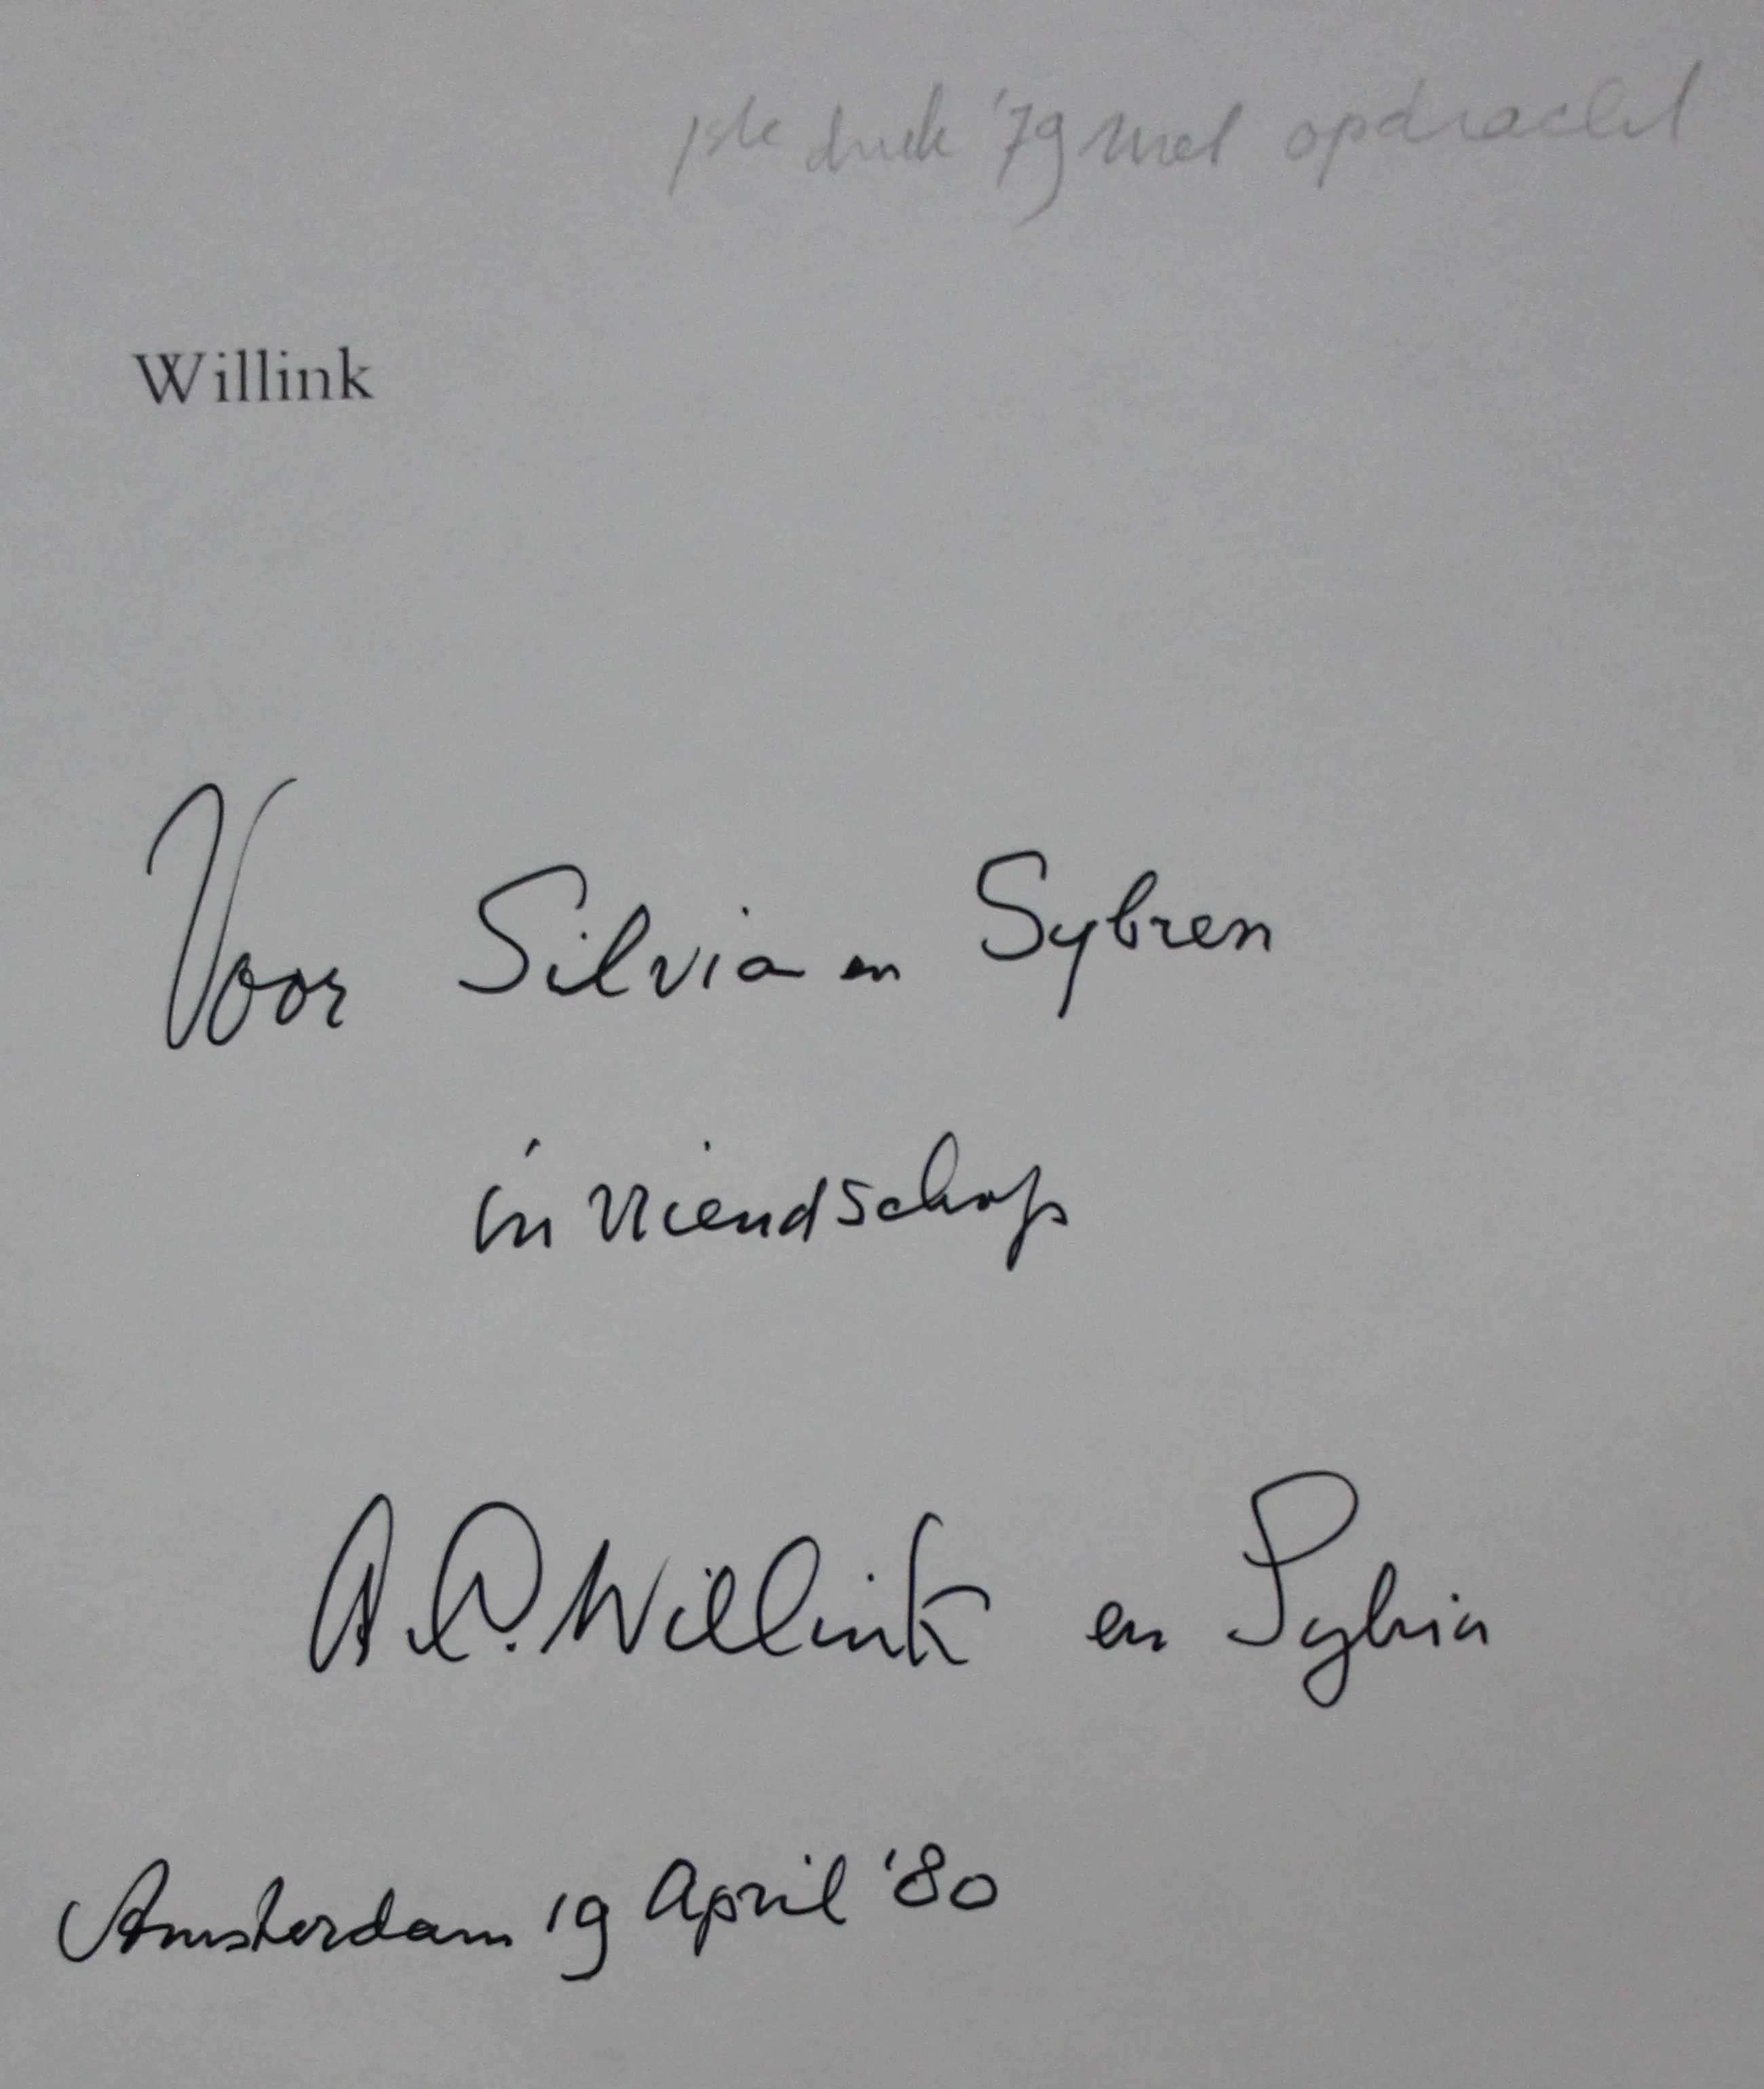 1ste druk '79 met opdracht
Willink
Voor Silvia en Sybren
in vriendschap
A.C. Willink en Sylvia
Amsterdam 19 April '80